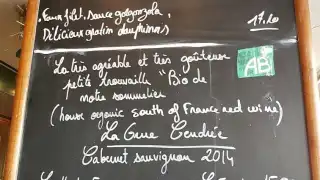 Faux filet, sauce gorgonzola,
Délicieux gratin dauphinois
17,20
La très agréable et très goûteuse
petite trouvaille "Bio de
notre sommelier
AB
(house organic south of France red wine)
La Grue Cendrée
Cabernet sauvignon 2014